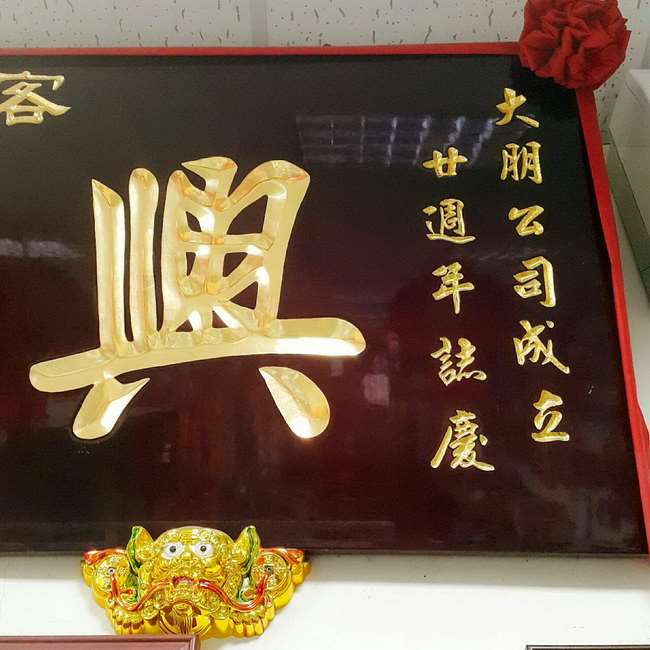 大朋公司成立
廿週年誌慶
興
客